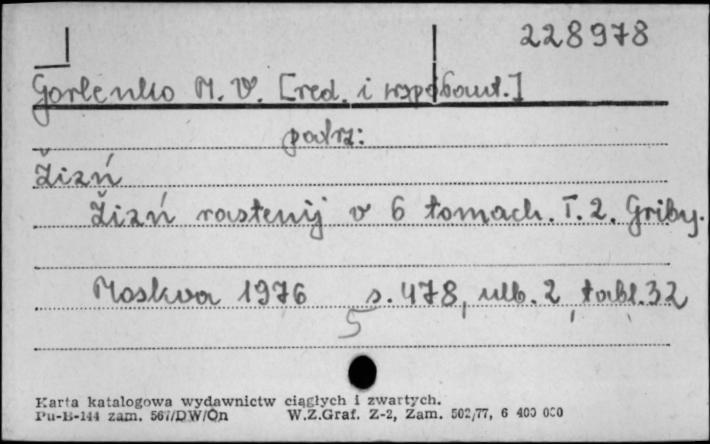 228978
Gorlenko M. V. [red. i współaut.]
patrz:
Žizń
Žizń rastenij v 6 tomach. T. 2. Griby.
Moskva 1976 s. 478, ulb. 2, tabl. 32
5
Karta katalogowa wydawnictw ciągłych i zwartych.
Pu-B-144 zam. 567/DW/On W.Z.Graf. Z-2, Zam. 502/77, 6 400 000